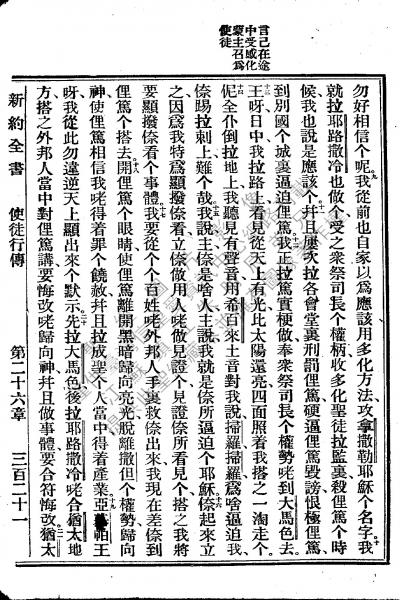 言己在途
中受感化
蒙主召爲
使徒
勿好相信個呢我從前也自家以爲應該用多化方法攻拿撒勒耶穌個名字我
就拉耶路撒冷也做個受之衆祭司長個權柄收多化聖徒拉監裏殺俚篤個時
候我也說是應該個幷且屢次拉各會堂裏刑罰俚篤硬逼俚篤毀謗恨極俚篤
到別國個城裏逼迫俚篤我正拉篤實梗做奉衆祭司長個權勢咾到大馬色去
王呀日中我拉路上看見從天上有光比太陽還亮四面照着我搭之一淘走個
伲全仆倒拉地上我聽見有聲音用希百來土音對我說掃羅掃羅爲啥逼迫我
倷踢拉刺上難個哉我說主倷是啥人主說我就是倷所逼迫個耶穌倷起來立
之因爲我特爲顯撥倷看立倷做用人咾做見證個見證倷所看見個搭之我將
要顯撥倷看個事體我要從個個百姓咾外邦人手裏救倷出來我現在差倷到
俚篤個搭去開俚篤個眼睛使俚篤離開黑暗歸向亮光脫離撒但個權勢歸向
神使俚篤相信我咾得着罪個饒赦幷且拉成聖個人當中得着產業亞帕王
呀我從此勿違逆天上顯出來個默示先拉大馬色後拉耶路撒冷咾合猶太地
方搭之外邦人當中對俚篤講要悔改咾歸向神幷且做事體要合符悔改猶太
新約全書 使徒行傳 第二十六章 三百二十一